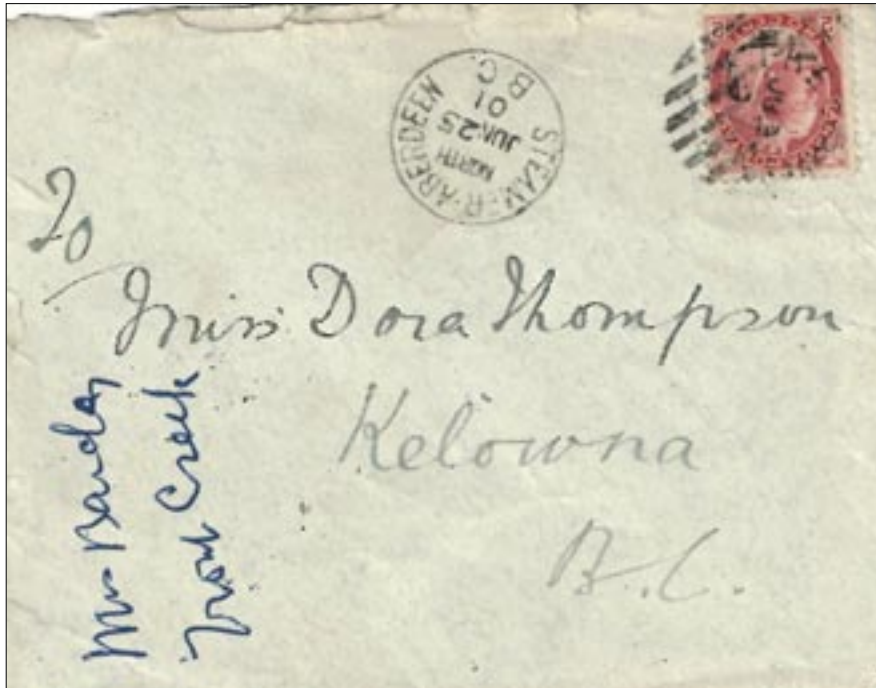 STEAMER·ABERDEEN
NORTH
JUN 25
01
B.C.
To
Miss Dora Thompson
Kelowna
B.C.
Mr Barclay
Trout Creek